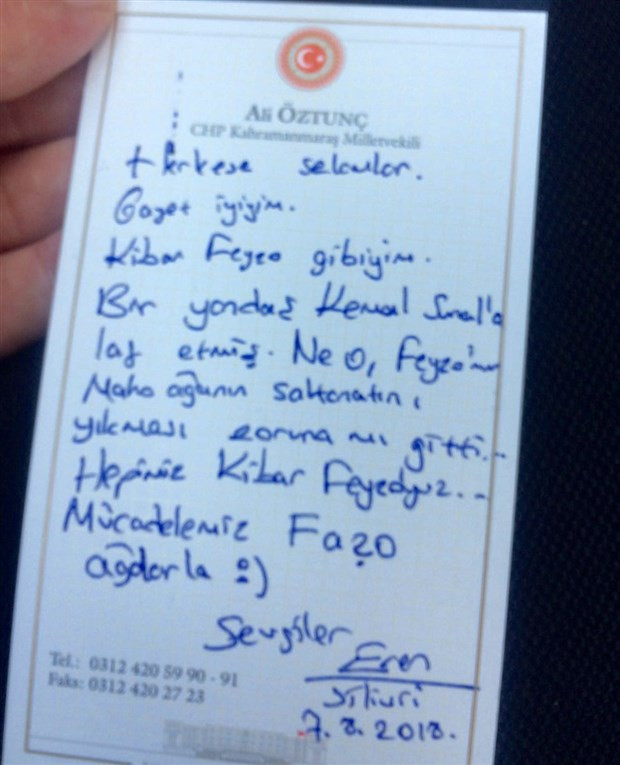 Ali ÖZTUNÇ
CHP Kahramanmaraş Milletvekili
Herkese selamlar.
Gayet iyiyim.
Kibar Feyzo gibiyim.
Bir yandaş Kemal Sunal'a
laf etmiş. Ne o, Feyzo'nun
Maho ağanın saltanatını
yıkması zoruna mı gitti...
Hepimiz Kibar Feyzoyuz...
Mücadelemiz Faşo
ağalarla :)
Sevgiler
Eren
Silivri
7.8.2018.
Tel.: 0312 420 59 90 - 91
Faks: 0312 420 27 23